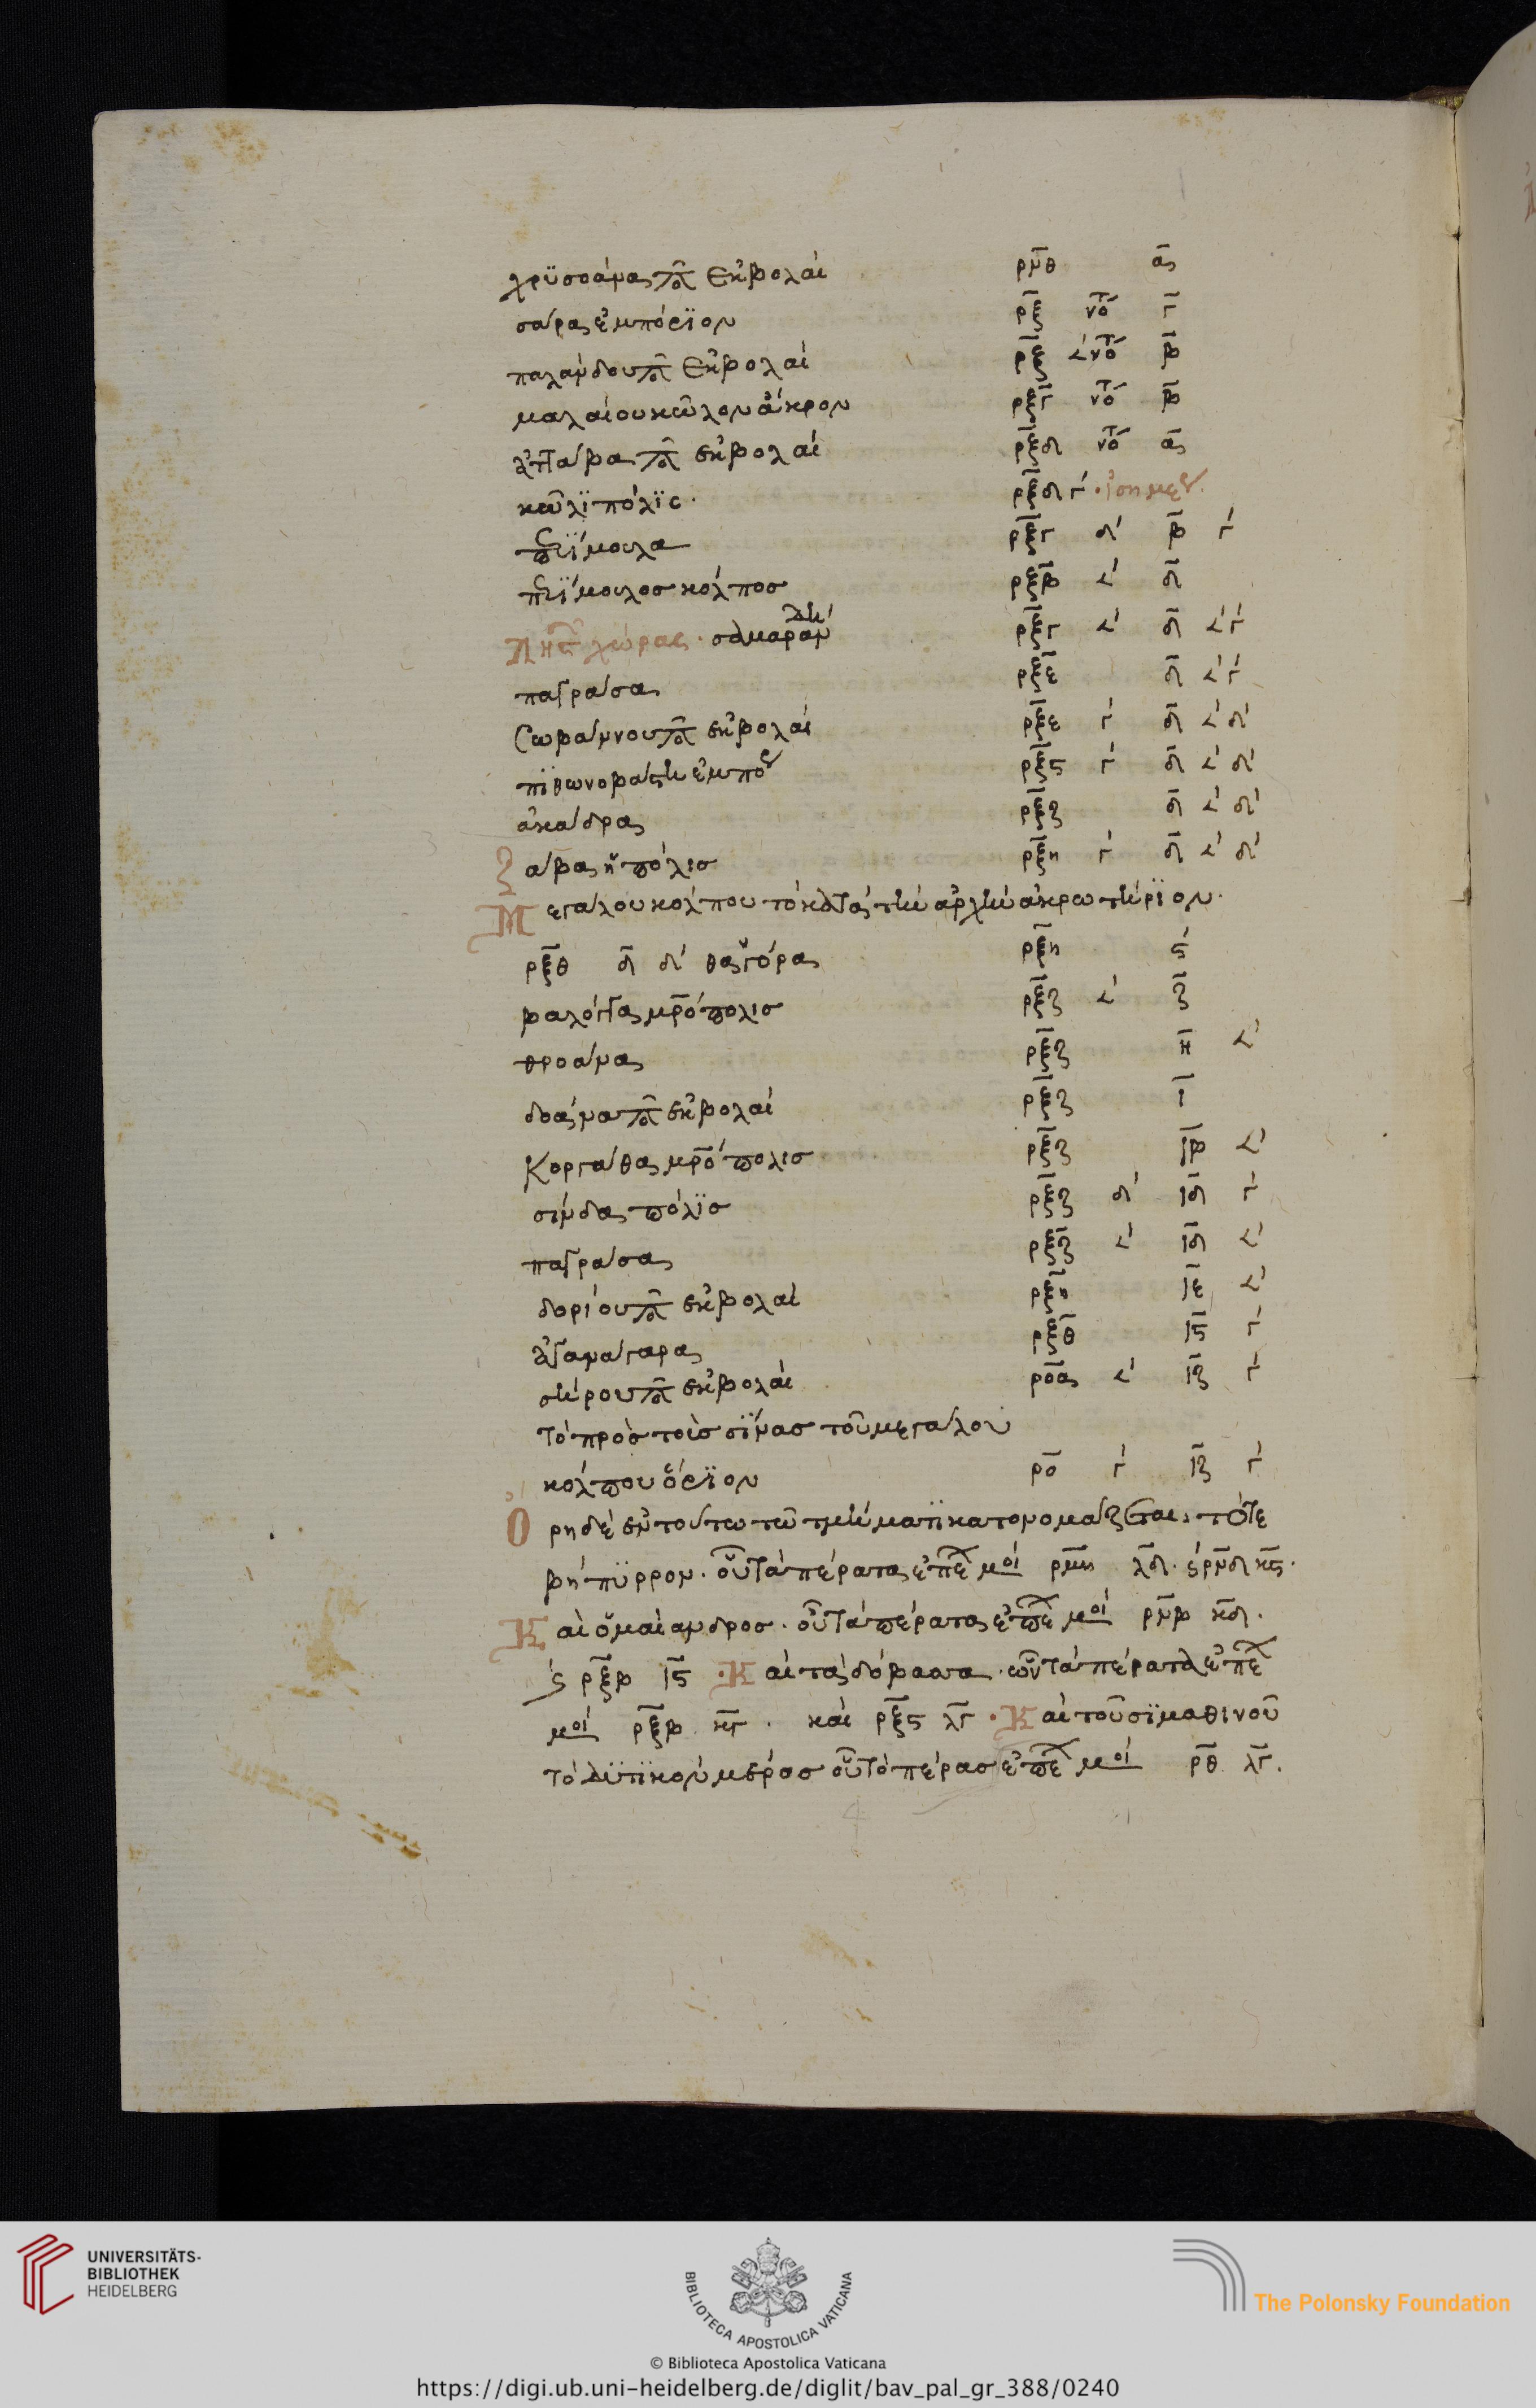 χρϋσοάνας πο̅ ἐκβολαὶ ρν̅θ α̅
σάβας ἐμπόριϊον ρξ̅ νο̅ γ̅
παλάνδου πο̅ ἐκβολαὶ ρξ̅ ∠ʹ νο̅ β̅
μαλαίου κῶλον ἄκρον ρξ̅γ νο̅ β̅
ἀττάβα πο̅ ἐκβολαὶ ρξ̅δ νο̅ α̅
κῶλϊ πόλϊς. ρξ̅δ γʹ · ἰσημερ
περϊμουλα ρξ̅γ δʹ β̅ γʹ
περϊμουλος κόλπος ρξ̅β ∠ʹ δ̅
λῃστ χώρας · σαμαράδη ρξ̅γ ∠ʹ δ̅ ∠ʹγʹ
παγράσα ρξ̅ε δ̅ ∠ʹγʹ
σωβάνου πο̅ ἐκβολαὶ ρξ̅ε γʹ δ̅ ∠ʹ δʹ
πϊθωνοβάστη ἐμπό ρξ̅ϛ γʹ δ̅ ∠ʹ δʹ
ἀκάδρα ρξ̅ζ δ̅ ∠ʹ δʹ
ζάβαι ἡ πόλισ ρξ̅η γʹ δ̅ ∠ʹ δʹ
Μεγάλου κόλπου τὸ κατὰ τὴν ἀρχὴν ἀκρωτήρϊον.
ρξ̅θ δ̅ δʹ θαγόρα ρξ̅η ϛ̅
βαλόγγα μρ̅όπολισ ρξ̅ζ ∠ʹ ζ̅
θροάνα ρξ̅ζ η̅ ∠ʹ
δοάνα πο̅ ἐκβολαὶ ρξ̅ζ ι̅
Κορτάθα μρ̅όπολισ ρξ̅ζ ι̅β ∠ʹ
σίνδα πόλϊσ ρξ̅ζ δʹ ι̅δ γʹ
παγράσα ρξ̅ζ ∠ʹ ι̅δ ∠ʹ
δορίου πο̅ ἐκβολαὶ ρξ̅ο ι̅ε ∠ʹ
ἀγανάγαρα ρξ̅θ ι̅ϛ γʹ
σήρου πο̅ ἐκβολαὶ ρο̅α ∠ʹ ι̅ζ γʹ
τὸ πρὸσ τοὶσ σϊνασ τοῦ μεγάλου
κόλπου ὅριϊον ρο̅ γʹ ι̅ζ γʹ
Ὄρη δὲ ἐν τούτω τῶ τμήματϊ κατονομάζεται. τό τε
βήπϋρρον. οὗ τὰ πέρατα ἐπέχ μοί ρμ̅η λ̅δ. ϛ ρν̅δ κ̅ϛ.
Καὶ ὁ μαίανδροσ. οὗ τὰ πέρατα ἐπέχ μοί ρν̅β κ̅δ.
ϛ ρξ̅β ι̅ϛ · Καὶ τὰ δόβασσα. ὧν τὰ πέρατα ἐπέχ
μοί ρξ̅β κ̅γ . καὶ ρξ̅ϛ λ̅γ · Καὶ τοῦ σϊμαθινοῦ
τὸ δϋτϊκὸν μέροσ οὗ τὸ πέρασ ἐπέχ μοί ρθ̅ λ̅γ.
UNIVERSITÄTS-
BIBLIOTHEK
HEIDELBERG
BIBLIOTECA APOSTOLICA VATICANA
The Polonsky Foundation
© Biblioteca Apostolica Vaticana
https://digi.ub.uni-heidelberg.de/diglit/bav_pal_gr_388/0240